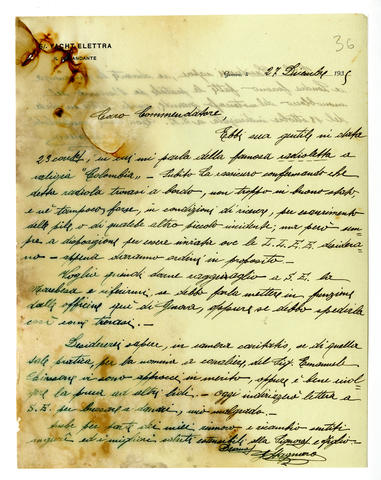 S/. YACHT ELETTRA
IL COMANDANTE
36
27 Dicembre 1935
Caro Commendatore,
Ebbi sua gentile in data
23 corr., in cui mi parla della famosa radioletta a
valigia "Colombia". - Subito La rassicuro confermando che
detta radiola trovasi a bordo, non troppo in buono stato
e nè tampoco forse, in condizioni di ricever, per esaurimento
delle pile, o di qualche altro piccolo incidente; ma però sem-
pre a disposizione per essere inviata ove le L.L. E.E. desidera-
no - appena daranno ordini in proposito. -
Voglia quindi darne ragguaglio a S.E. la
Marchesa e riferirmi, se debbo farla mettere in funzione
dalle officine qui di Genova, oppure se debbo spedirla
così come trovasi. -
Desidererei sapere, in camera caritatis, se di quella
tale pratica, per la nomina a cavaliere, del Sig. Emanuele
vi sono approcci in merito, oppure è bene
la prua ad altri lidi. - oggi indirizzo lettera a
S.E. per
per parte dei miei
auguri ed i migliori saluti alla Signora e figlio